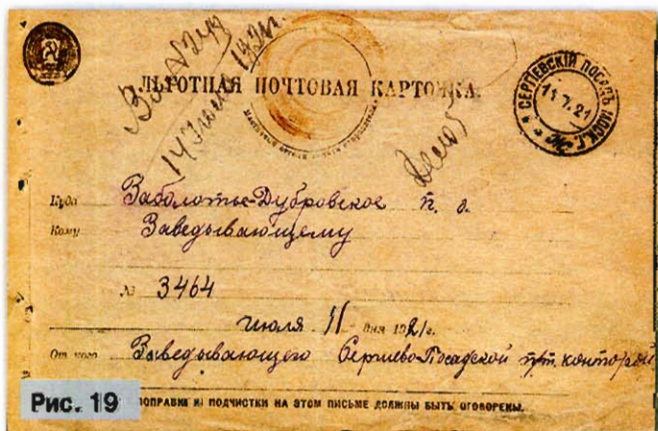 14 Июля 1921г.
ЛЬГОТНАЯ ПОЧТОВАЯ КАРТОЧКА.
СЕРГІЕВСКІЙ ПОСАДЪ МОСК.Г.
11.7.21
Куда Заболотье-Дубровское п. о.
Кому Заведывающему
№ 3464
июля 11 дня 1921г.
От кого Заведывающего Сергиево-Посадской п/т. конторой
Рис. 19
ПОПРАВКИ И ПОДЧИСТКИ НА ЭТОМ ПИСЬМЕ ДОЛЖНЫ БЫТЬ ОГОВОРЕНЫ.